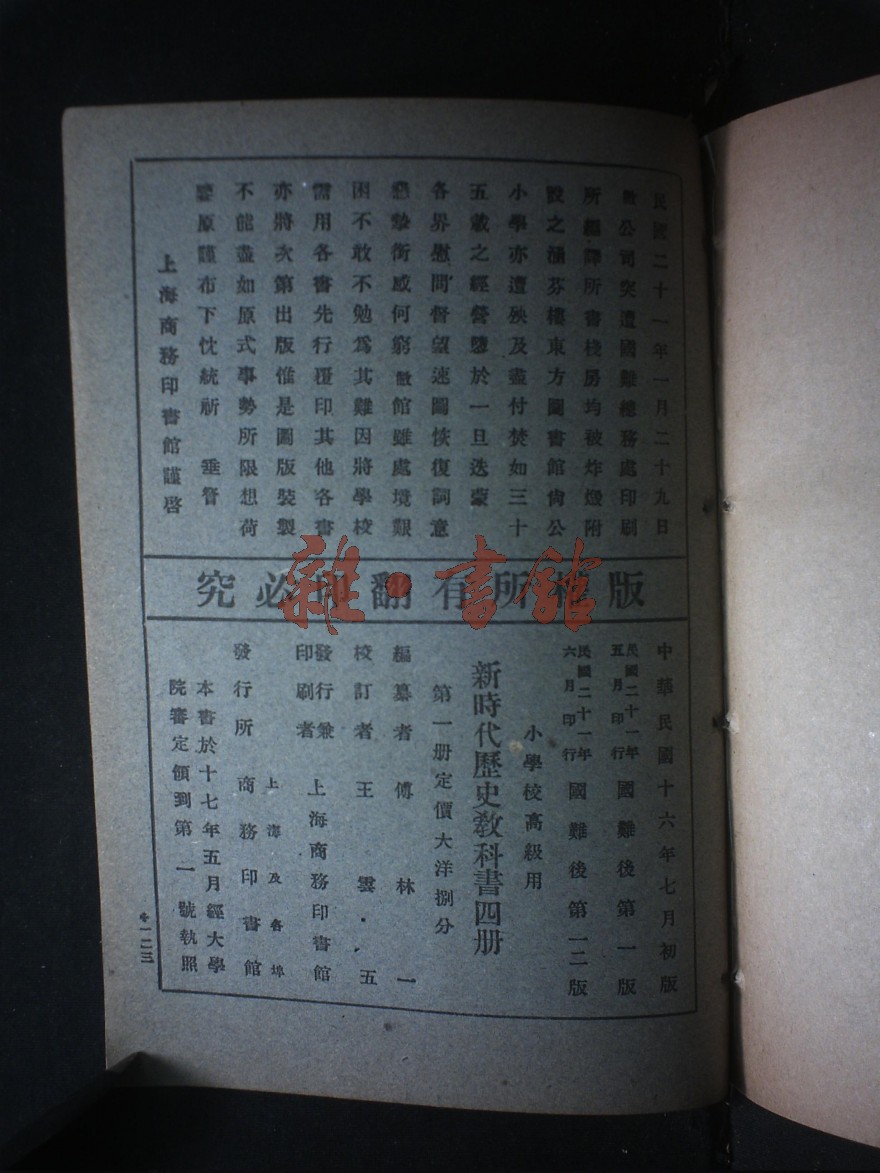 民國二十一年一月二十九日
敝公司突遭國難總務處印刷
所編譯所書棧房均被炸燬附
設之涵芬樓東方圖書館尙公
小學亦遭殃及盡付焚如三十
五載之經營隳於一旦迭蒙
各界慰問督望速圖恢復詞意
懇摯銜感何窮敝館雖處境艱
困不敢不勉爲其難因將學校
需用各書先行覆印其他各書
亦將次第出版惟是圖版裝製
不能盡如原式事勢所限想荷
鑒原謹布下忱統祈 垂詧
上海商務印書館謹啓
版權所有翻印必究
雜·書館
中華民國十六年七月初版
民國二十一年五月印行 國難後第一版
民國二十一年六月印行 國難後第一二版
小學校高級用
新時代歷史教科書四册
第一册定價大洋捌分
編纂者 傅林一
校訂者 王雲五
發行兼印刷者 上海商務印書館
發行所 上海及各埠 商務印書館
本書於十七年五月經大學
院審定領到第一號執照
一二三